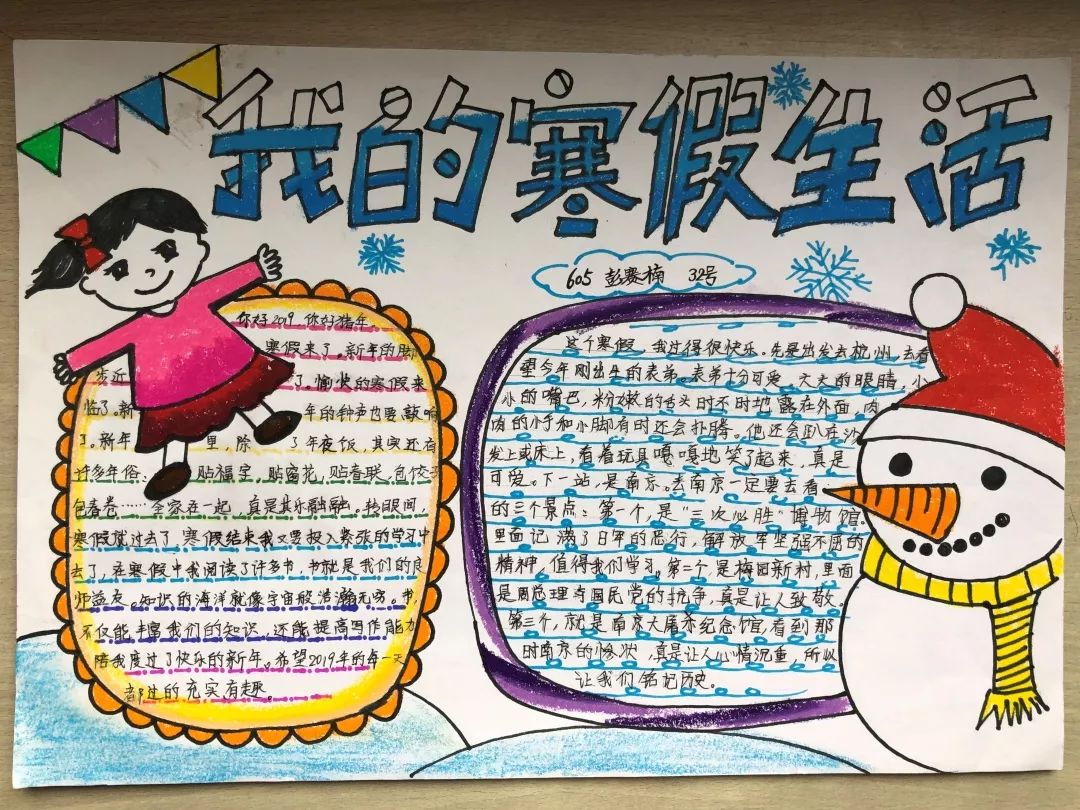 我的寒假生活
605 彭赛楠 32号
你好2019 你好猪年
寒假来了。新年的脚
步近 了。愉快的寒假来
临了。新 年的钟声也要敲响
了。新年 里，除 了年夜饭，其实还有
许多年俗： 贴福字，贴窗花，贴春联，包饺子
包春卷……全家在一起，真是其乐融融。转眼间，
寒假就过去了，寒假结束我又要投入紧张的学习中
去了，在寒假中我阅读了许多书，书就是我们的良
师益友。知识的海洋就像宇宙般浩瀚无穷。书
不仅能丰富我们的知识，还能提高写作能力
陪我度过了快乐的新年。希望2019年的每一天
都过的充实有趣。
这个寒假，我过得很快乐。先是出发去杭州，去看
望今年刚出生的表弟。表弟十分可爱，大大的眼睛，小
小的嘴巴，粉嫩的舌头时不时地露在外面，肉
肉的小手和小脚有时还会扑腾。他还会趴在沙
发上或床上，看着玩具嘎嘎地笑了起来，真是
可爱。下一站，是南京。去南京一定要去看
的三个景点：第一个，是“三次必胜”博物馆。
里面记 满了日军的恶行，解放军坚强不屈的
精神，值得我们学习。第二个是梅园新村，里面
是周恩理与国民党的抗争，真是让人致敬。
第三个，就是南京大屠杀纪念馆，看到那
时南京的惨状，真是让人心情沉重，所以
让我们铭记历史。